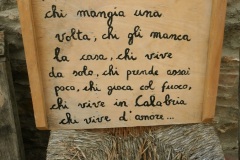 chi mangia una
volta, chi gli manca
la casa, chi vive
da solo, chi prende assai
poco, chi gioca col fuoco,
chi vive in Calabria
chi vive d'amore...